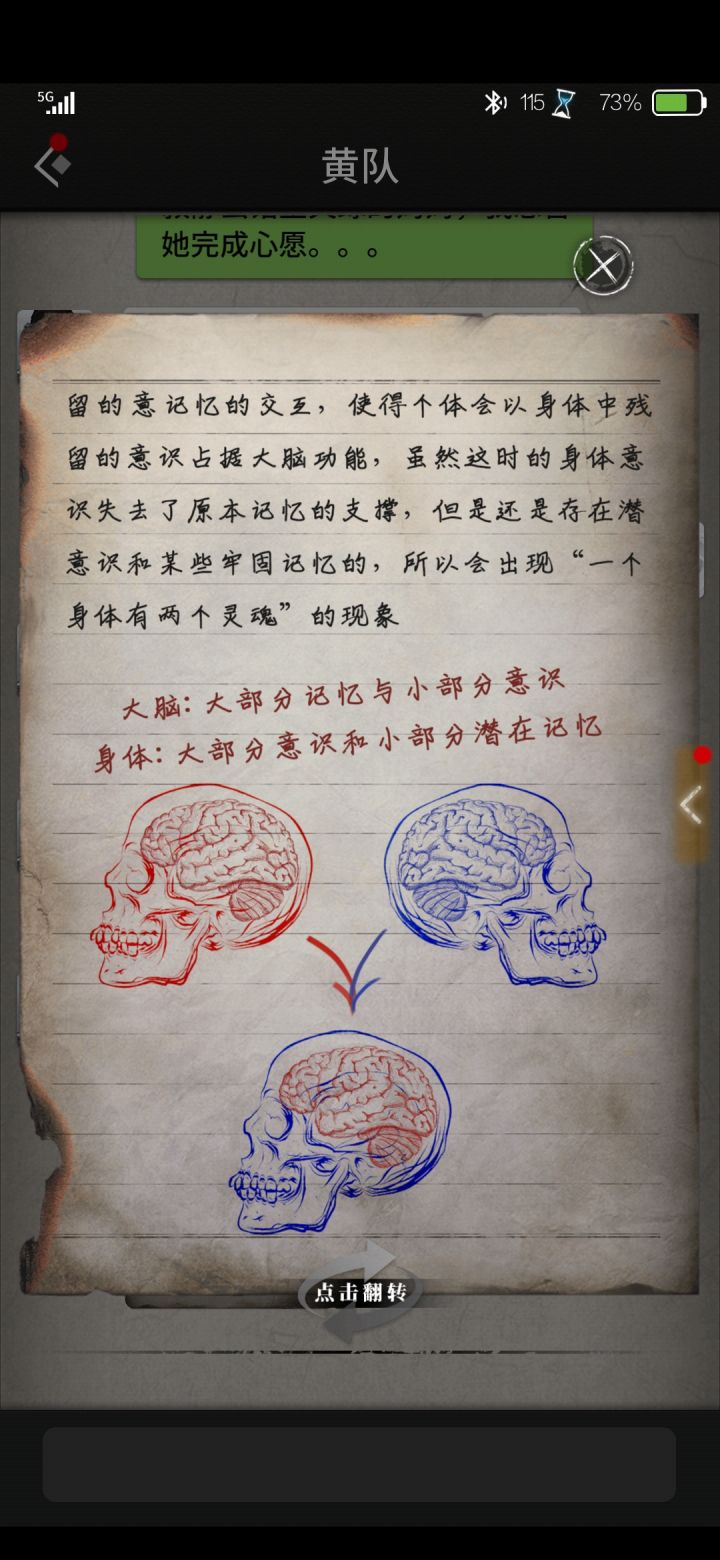 5G
115
73%
黄队
她完成心愿。。。
留的意记忆的交互，使得个体会以身体中残
留的意识占据大脑功能，虽然这时的身体意
识失去了原本记忆的支撑，但是还是存在潜
意识和某些牢固记忆的，所以会出现“一个
身体有两个灵魂”的现象
大脑：大部分记忆与小部分意识
身体：大部分意识和小部分潜在记忆
点击翻转